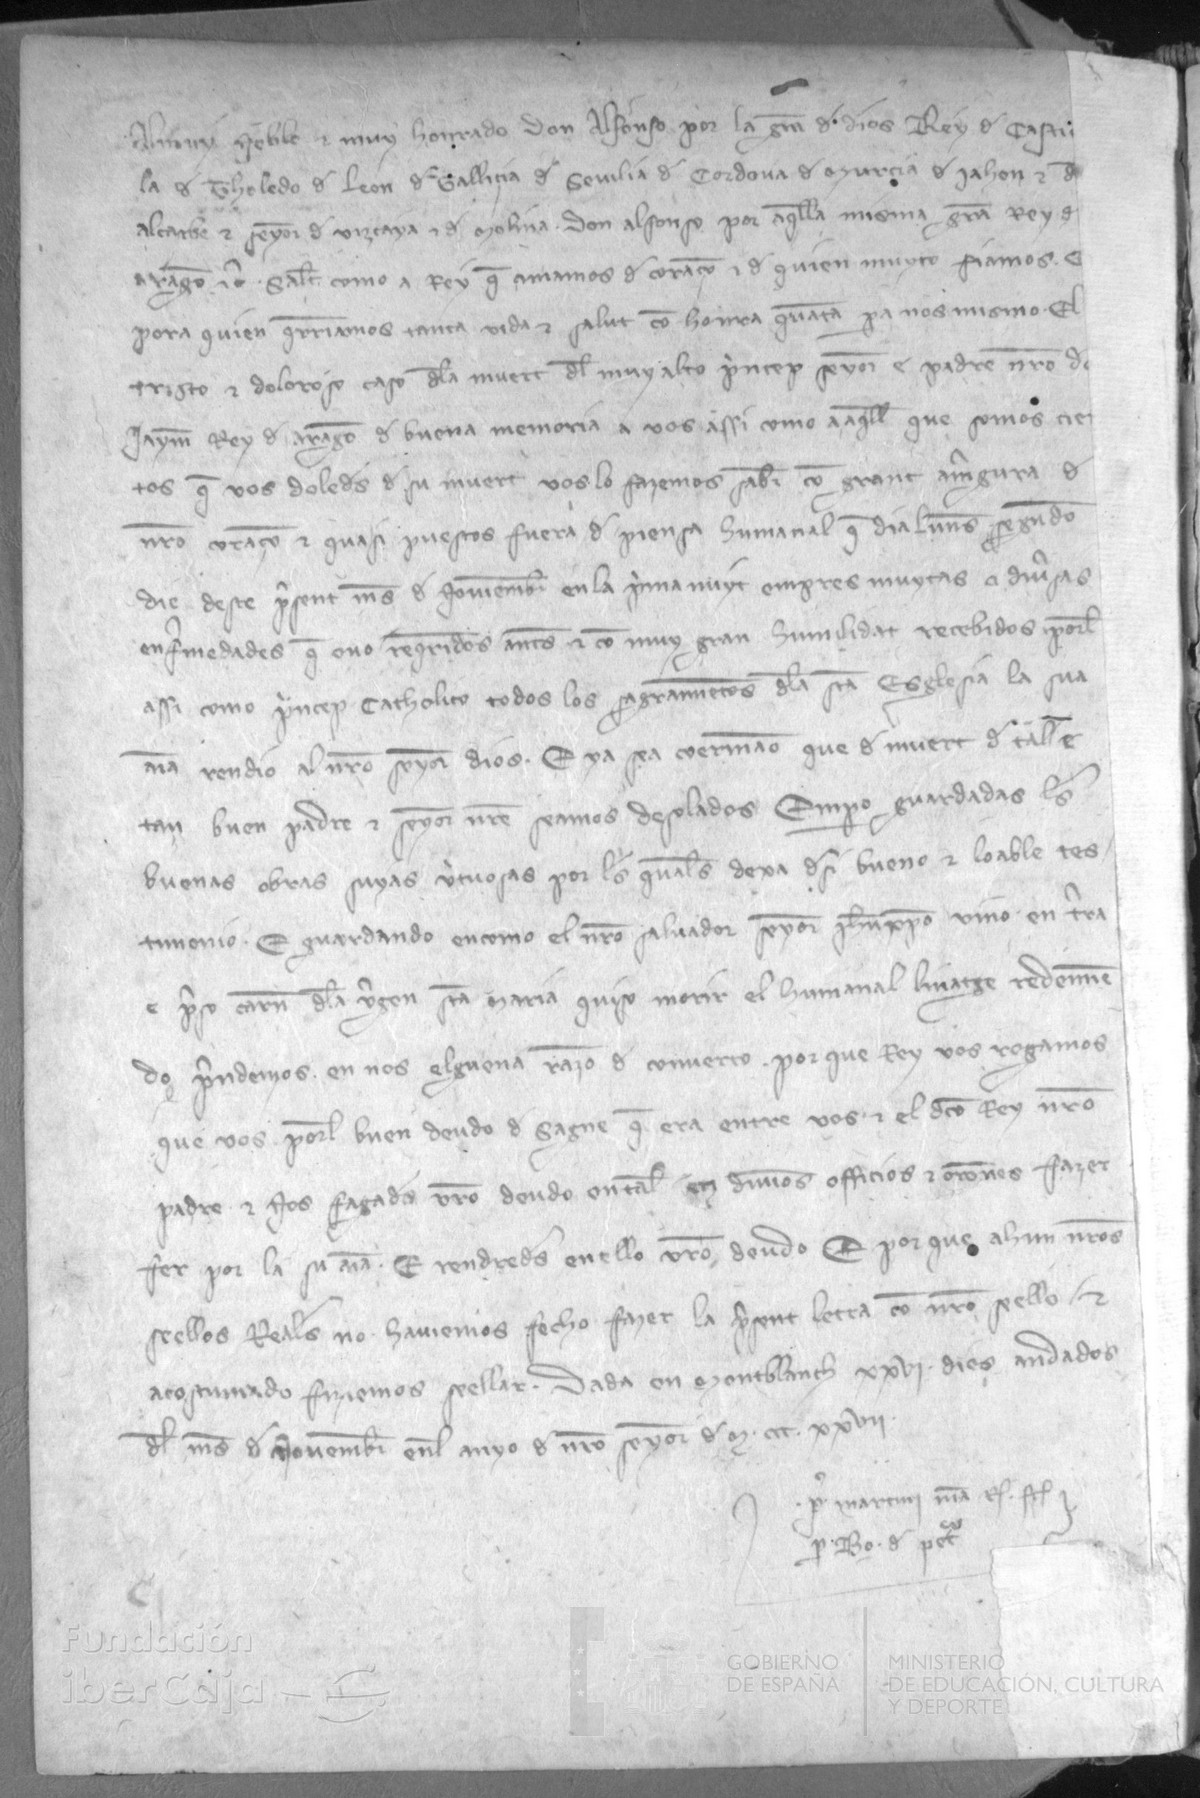 Almuy noble ⁊ muy honrado Don Alfonso por la gra de dios Rey de Casti
lla de Tholedo de Leon de Gallicia de Sevilia de Cordova de Murcia de Jahen ⁊ d
algarbe ⁊ senyor de vizcaya ⁊ de Molina. Don alfonso por aqlla misma gra Rey d
aragon ⁊c. Salt como a Rey q amamos de coraço ⁊ de quien muyto fiamos. E
pora quien qrriamos tanta vida ⁊ salut co honra quata pa nos mismo. El
tristo ⁊ doloroso caso dla muert dl muy alto princep senyor e padre nro do
Jaym Rey d arago d buena memoria a vos assi como a aqll que somos cier
tos q vos doleds d su muert vos lo fazemos sabr co grant amrgura de
nro coraço ⁊ quasi puestos fuera d piensa humanal q dia luns segundo
die deste psent ms d Noviembr en la prima nuyt empres muytas e divsas
enfrmedades q ovo reqridos ants ⁊ co muy gran humilidat recebidos porl
assi como princep Catholico todos los sagrametos dla sta Esglesia la sua
aia rendio al nro senyor dios. E ya sea verman que d muert d tall e
tan buen padre ⁊ senyor nre seamos desolados Empo guardadas ls
buenas obras suyas vrtuosas por ls quals dexa dsi bueno ⁊ loable tes
timonio. E guardando encomo el nro salvador senyor ihuxpo vino en trra
e pso carn dla vrgen sta Maria quiso morir el humanal linatge redemie
do prndemos en nos alguena razo d conuerto. por que Rey vos rogamos
que vos porl buen deudo d sagne q era entre vos ⁊ el dco Rey nro
padre ⁊ Nos fagads vro deudo en tal en divinos officios ⁊ orones fazer
fer por la su aia. E rendreds en ello vro deudo E por que ahun nros
seellos Reals no haviemos fecho fazer la psent letra co nro seello
acostumado fiziemos seellar. Dada en Montblanch xxvi. dies andados
dl ms d Novembr enl anyo d nro senyor d M. ccc. xxvii.
p. martini
p. Bo. d
Fundación
iberCaja
GOBIERNO
DE ESPAÑA
MINISTERIO
DE EDUCACIÓN, CULTURA
Y DEPORTE